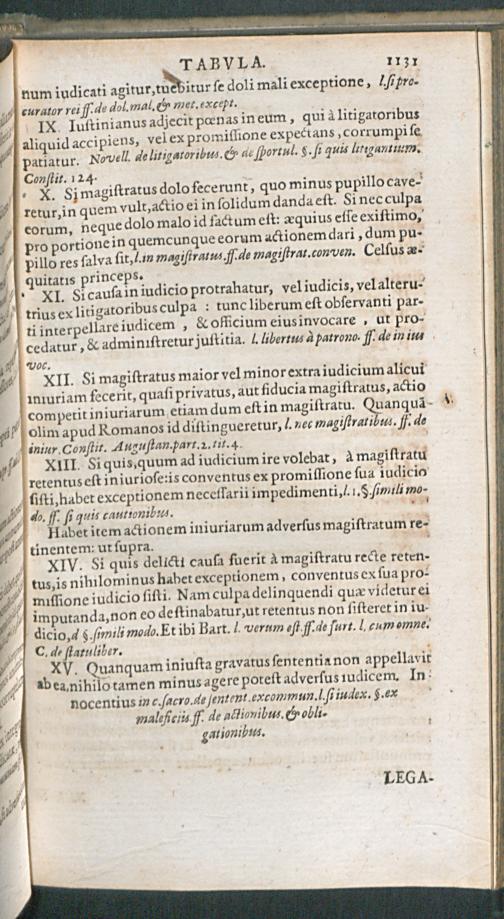 TABVLA. 1131
num iudicati agitur, tuebitur se doli mali exceptione, l. si pro-
curator rei ff. de dol. mal. & met. except.
IX. Iustinianus adjecit pœnas in eum, qui à litigatoribus
aliquid accipiens, vel ex promissione expectans, corrumpi se
patiatur. Novell. de litigatoribus. & de sportul. §. si quis litigantium.
Constit. 124.
X. Si magistratus dolo fecerunt, quo minus pupillo cave-
retur, in quem vult, actio ei in solidum danda est. Si nec culpa
eorum, neque dolo malo id factum est: æquius esse existimo,
pro portione in quemcunque eorum actionem dari, dum pu-
pillo res salva sit, l. in magistratus. ff. de magistrat. conven. Celsus æ-
quitatis princeps.
XI. Si causa in iudicio protrahatur, vel iudicis, vel alteru-
trius ex litigatoribus culpa : tunc liberum est observanti par-
ti interpellare iudicem, & officium eius invocare, ut pro-
cedatur, & administretur justitia. l. libertus à patrono. ff. de in ius
voc.
XII. Si magistratus maior vel minor extra iudicium alicui
iniuriam fecerit, quasi privatus, aut fiducia magistratus, actio
competit iniuriarum etiam dum est in magistratu. Quanquā
olim apud Romanos id distingueretur, l. nec magistratibus. ff. de
iniur. Constit. Augustan. part. 2. tit. 4.
XIII. Si quis, quum ad iudicium ire volebat, à magistratu
retentus est iniuriose: is conventus ex promissione sua iudicio
sisti, habet exceptionem necessarii impedimenti, l. 1. §. simili mo-
do. ff. si quis cautionibus.
Habet item actionem iniuriarum adversus magistratum re-
tinentem: ut supra.
XIV. Si quis delicti causa fuerit à magistratu recte reten-
tus, is nihilominus habet exceptionem, conventus ex sua pro-
missione iudicio sisti. Nam culpa delinquendi quæ videtur ei
imputanda, non eo destinabatur, ut retentus non sisteret in iu-
dicio, d §. simili modo. Et ibi Bart. l. verum est. ff. de furt. l. cum omne.
C. de statuliber.
XV. Quanquam iniusta gravatus sententia non appellavit
ab ea, nihilo tamen minus agere potest adversus iudicem. In-
nocentius in c. sacro. de sentent. excommun. l. si iudex. §. ex
maleficiis. ff. de actionibus. & obli-
gationibus.
LEGA-